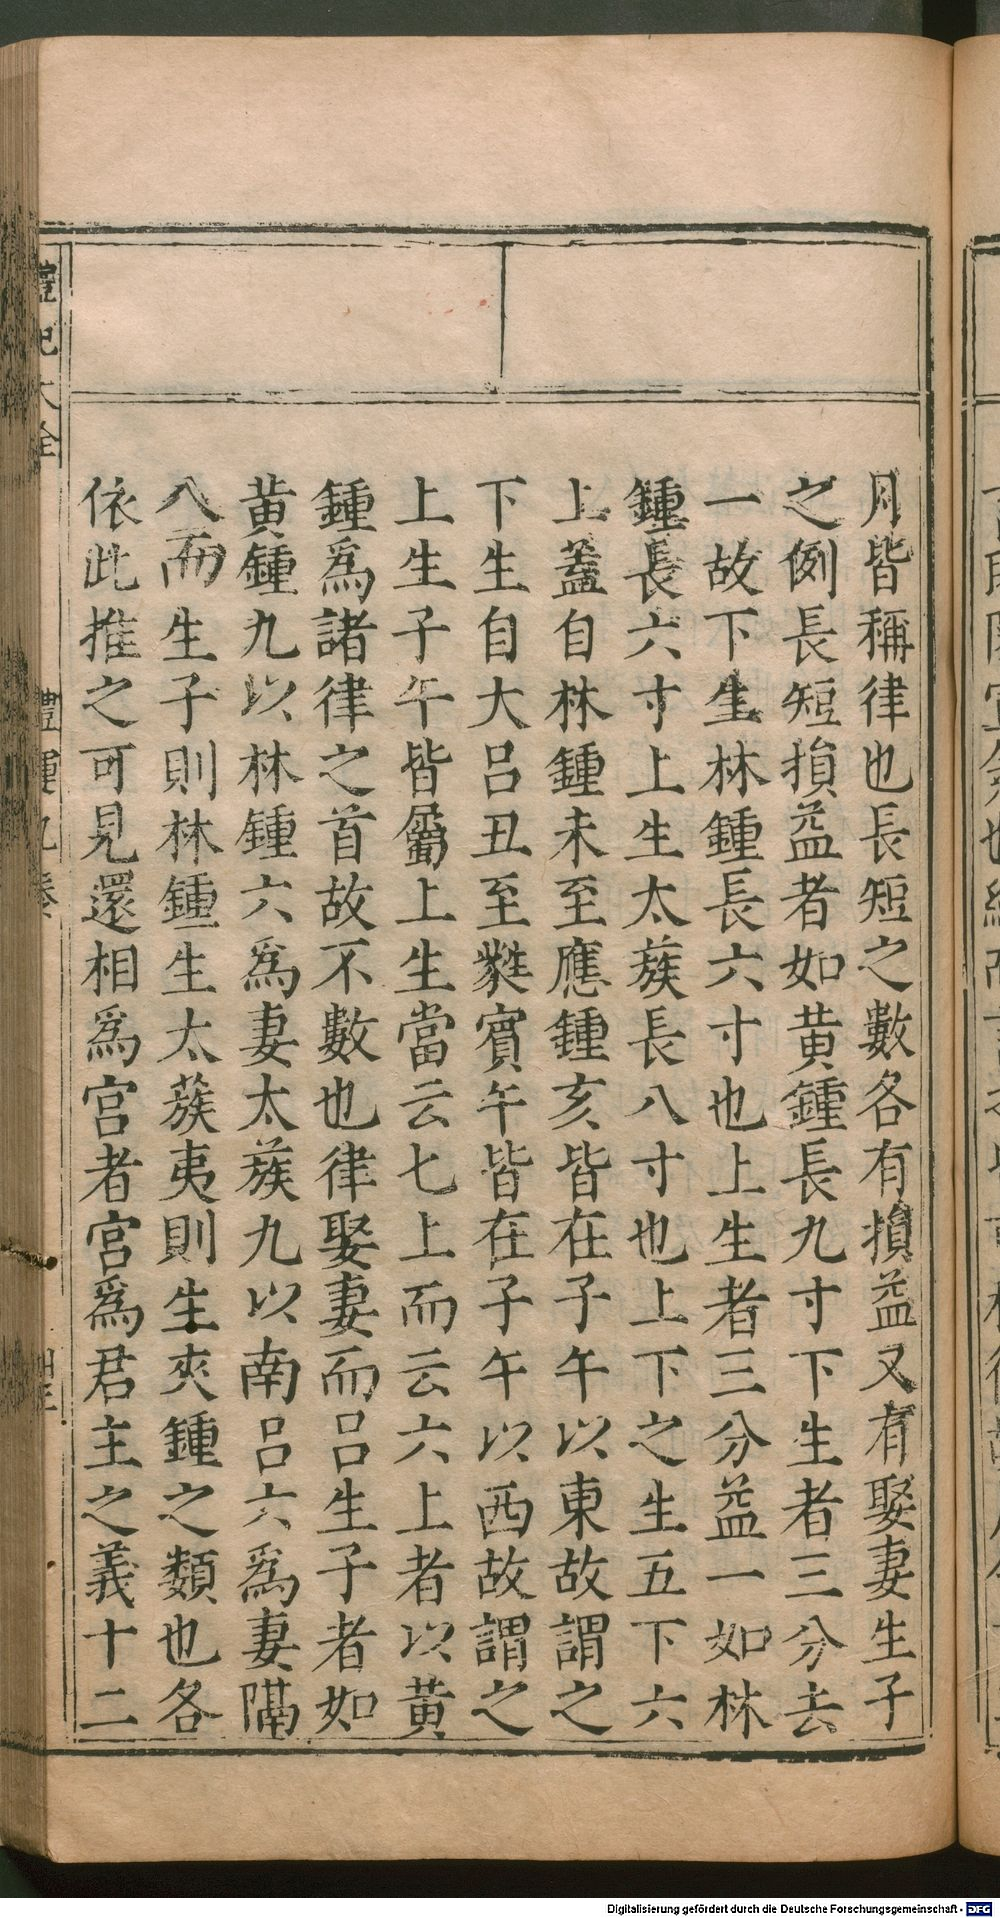 月皆稱律也長短之數各有損益又有娶妻生子
之例長短損益者如黃鍾長九寸下生者三分去
一故下生林鍾長六寸也上生者三分益一如林
鍾長六寸上生太蔟長八寸也上下之生五下六
上蓋自林鍾未至應鍾亥皆在子午以東故謂之
下生自大呂丑至蕤賓午皆在子午以西故謂之
上生子午皆屬上生當云七上而云六上者以黃
鍾爲諸律之首故不數也律娶妻而呂生子者如
黃鍾九以林鍾六爲妻太蔟九以南呂六爲妻隔
八而生子則林鍾生太蔟夷則生夾鍾之類也各
依此推之可見還相爲宮者宮爲君主之義十二
禮記大全
禮運九卷
Digitalisierung gefördert durch die Deutsche Forschungsgemeinschaft - DFG